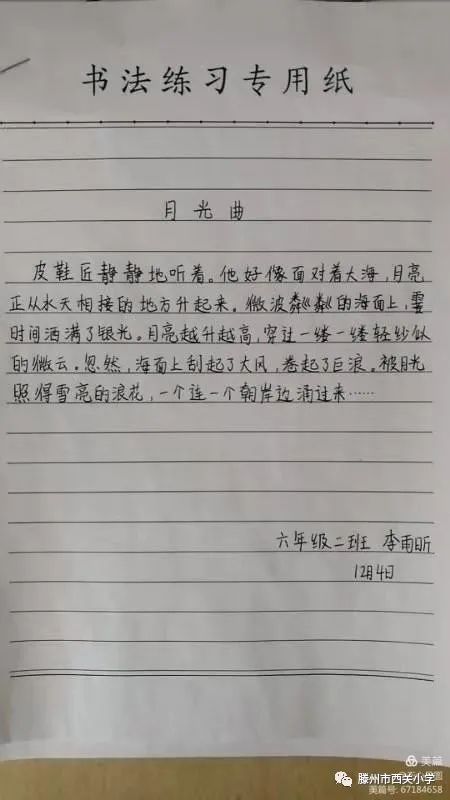 书法练习专用纸
月光曲
皮鞋匠静静地听着。他好像面对着大海，月亮
正从水天相接的地方升起来。微波粼粼的海面上，霎
时间洒满了银光。月亮越升越高，穿过一缕一缕轻纱似
的微云。忽然，海面上刮起了大风，卷起了巨浪。被月光
照得雪亮的浪花，一个连一个朝岸边涌过来……
六年级二班 李雨昕
12月4日
美篇
滕州市西关小学
美篇号：67184658